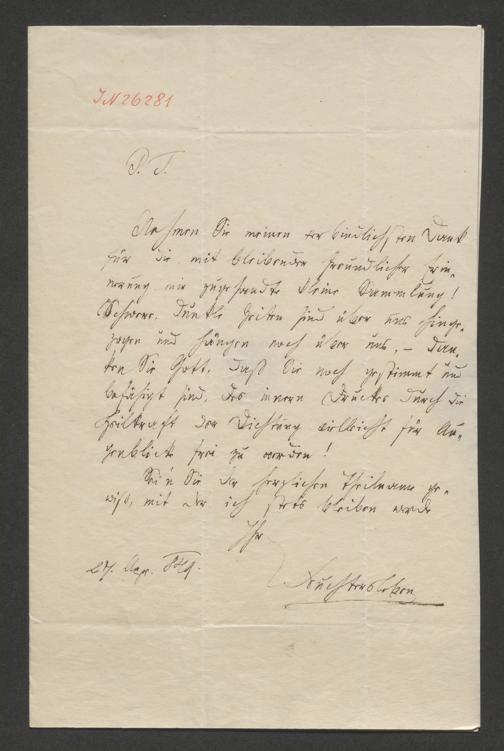 IN 26281
P. T.
Nehmen Sie meinen verbindlichsten Dank
für die mit bleibender freundlicher Erin-
nerung mir zugesandte kleine Sammlung!
Schwere, dunkle Zeiten sind über uns hinge-
zogen und hängen noch über uns, – dan-
ken Sie Gott, daß Sie noch gestimmt und
befähigt sind, des innern Druckes durch die
Heilkraft der Dichtung vielleicht für Au-
genblicke frei zu werden!
Sei'n Sie der herzlichen Theilname ge-
wiß, mit der ich stets bleiben werde
Ihr
Feuchtersleben
27.